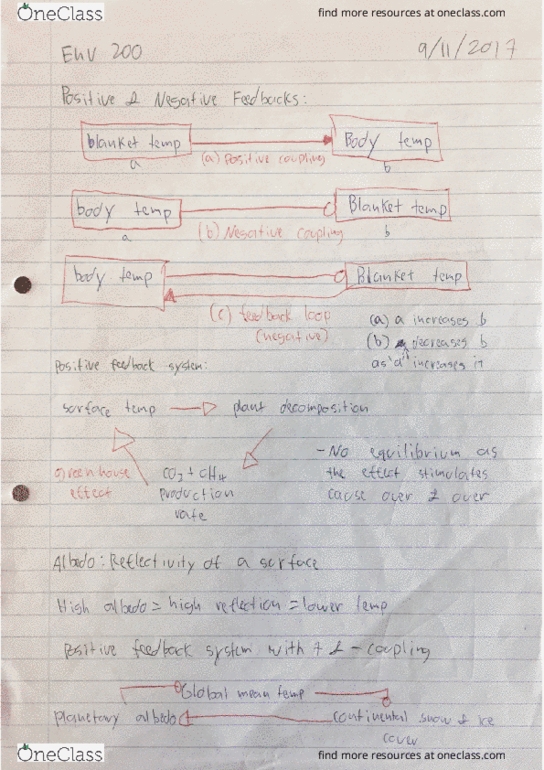 OneClass
find more resources at oneclass.com
EnV 200
9/11/2017
Positive & Negative Feedbacks:
blanket temp
Body temp
a
(a) Positive coupling
b
body temp
Blanket temp
a
(b) Negative coupling
b
body temp
Blanket temp
(c) feedback loop
(negative)
(a) a increases b
(b) decreases b
as 'a' increases it
Positive feedback system:
surface temp
plant decomposition
greenhouse
effect
CO2 + CH4
Production
rate
- No equilibrium as
the effect stimulates
cause over & over
Albedo: Reflectivity of a surface
High albedo = high reflection = lower temp
Positive feedback system with + & - coupling
Global mean temp
planetary albedo
continental snow & ice
cover
OneClass
find more resources at oneclass.com